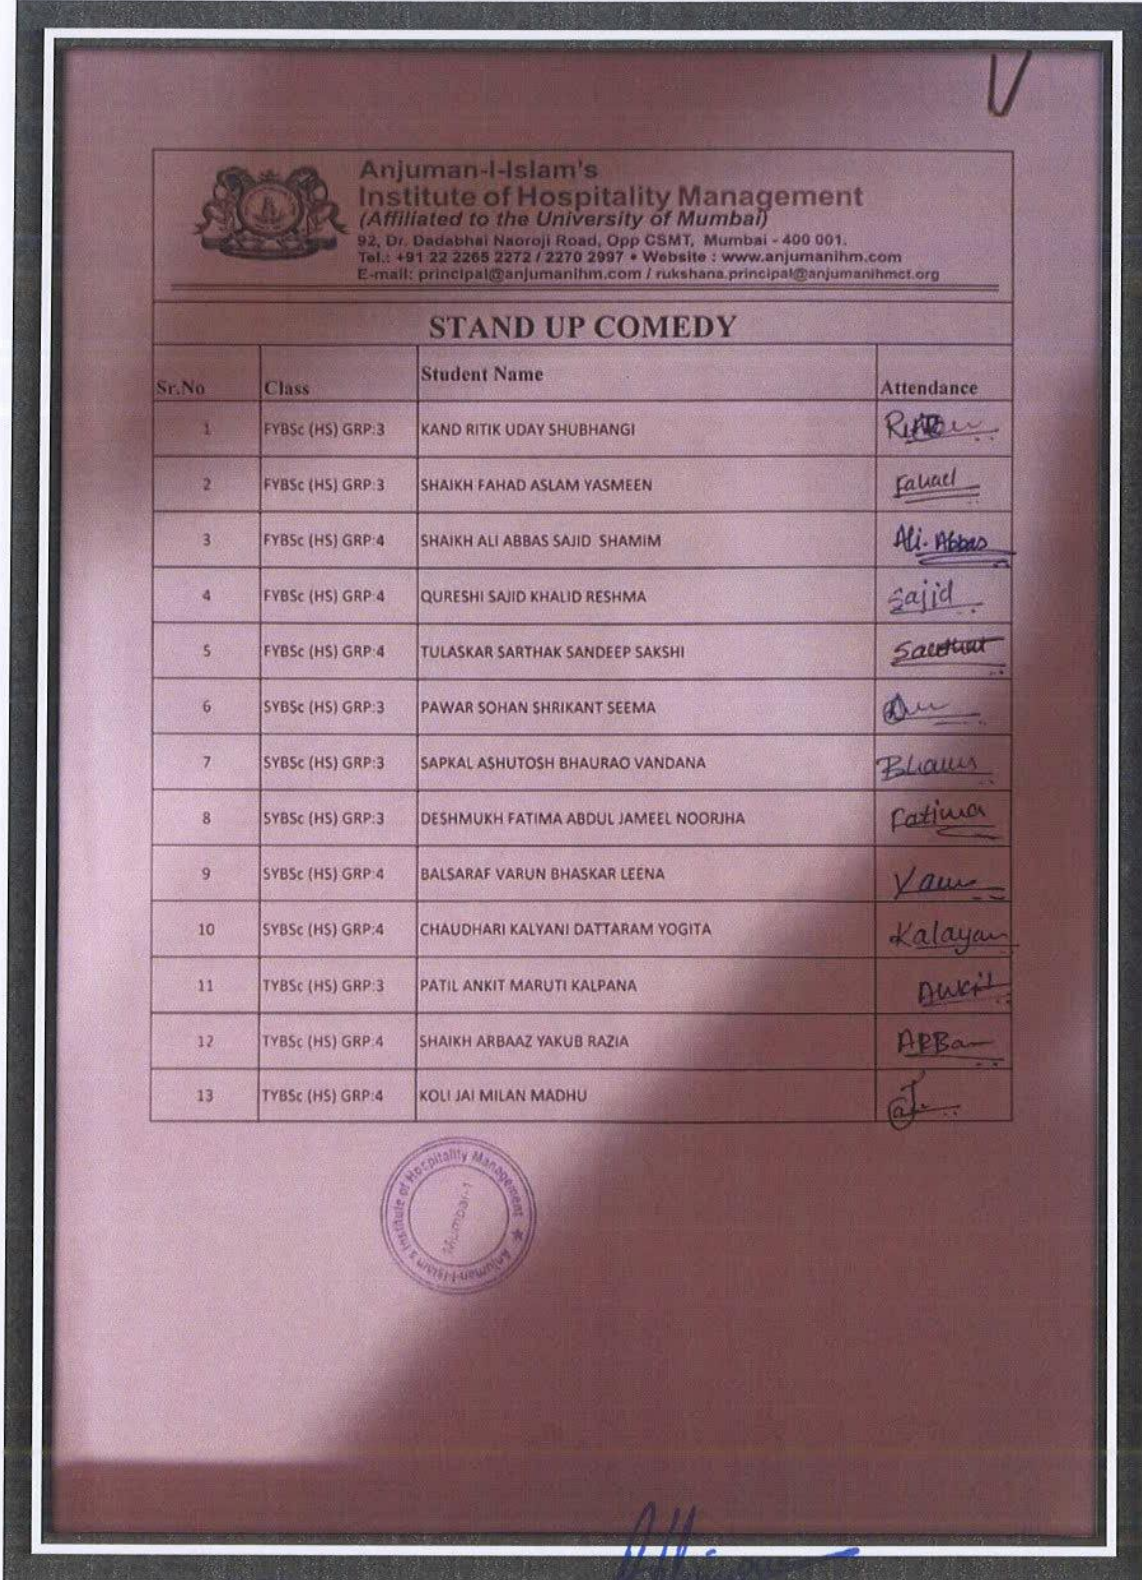 Anjuman-I-Islam's
Institute of Hospitality Management
(Affiliated to the University of Mumbai)
92, Dr. Dadabhai Naoroji Road, Opp CSMT, Mumbai - 400 001.
Tel.: +91 22 2265 2272 / 2270 2997 • Website : www.anjumanihm.com
E-mail: principal@anjumanihm.com / rukshana.principal@anjumanihmct.org
STAND UP COMEDY
Sr.No Class Student Name Attendance
1 FYBSc (HS) GRP:3 KAND RITIK UDAY SHUBHANGI
2 FYBSc (HS) GRP:3 SHAIKH FAHAD ASLAM YASMEEN Fahad
3 FYBSc (HS) GRP:4 SHAIKH ALI ABBAS SAJID SHAMIM Ali-Abbas
4 FYBSc (HS) GRP:4 QURESHI SAJID KHALID RESHMA Sajid
5 FYBSc (HS) GRP:4 TULASKAR SARTHAK SANDEEP SAKSHI
6 SYBSc (HS) GRP:3 PAWAR SOHAN SHRIKANT SEEMA
7 SYBSc (HS) GRP:3 SAPKAL ASHUTOSH BHAURAO VANDANA
8 SYBSc (HS) GRP:3 DESHMUKH FATIMA ABDUL JAMEEL NOORJHA Fatima
9 SYBSc (HS) GRP:4 BALSARAF VARUN BHASKAR LEENA
10 SYBSc (HS) GRP:4 CHAUDHARI KALYANI DATTARAM YOGITA Kalayan
11 TYBSc (HS) GRP:3 PATIL ANKIT MARUTI KALPANA Ankit
12 TYBSc (HS) GRP:4 SHAIKH ARBAAZ YAKUB RAZIA
13 TYBSc (HS) GRP:4 KOLI JAI MILAN MADHU
Anjuman-I-Islam's Institute of Hospitality Management
Mumbai-1